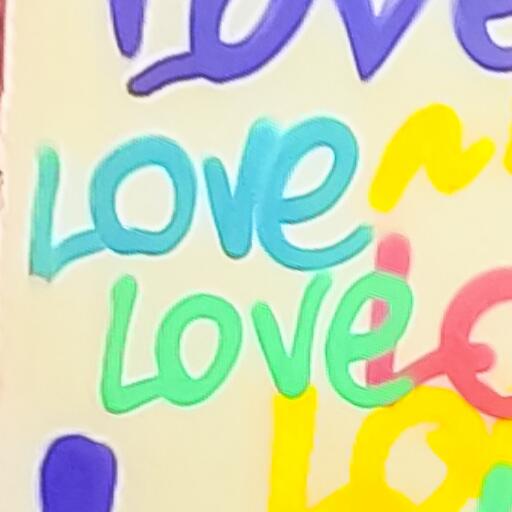 Love
Love
Love
Lo
Lo